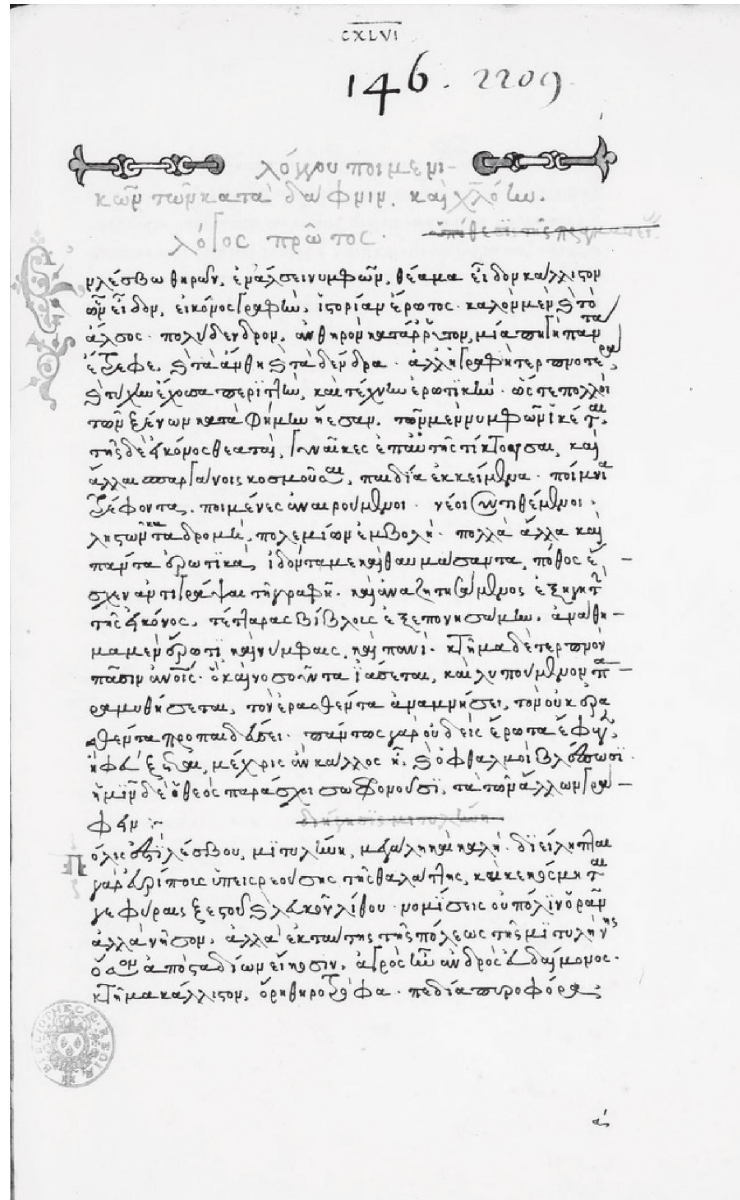 CXLVI
146. 2209
λόγγου ποιμενι-
κῶν τῶν κατὰ δάφνιν, καὶ χλόην.
λόγος πρῶτος.
ν λέσβω θηρῶν, ἐν ἄλσει νυμφῶν, θέαμα εἶδον κάλλιστον
ὧν εἶδον, εἰκόνος γραφὴν, ἱστορίαν ἔρωτος. καλὸν μὲν καὶ τὸ
ἄλσος· πολύδενδρον, ἀνθηρὸν κατάρρυτον, μία πηγὴ πάντα
ἔτρεφε, καὶ τὰ ἄνθη καὶ τὰ δένδρα· ἀλλ' ἡ γραφὴ τερπνοτέρα
καὶ τύχην ἔχουσα περιττὴν, καὶ τέχνην ἐρωτικήν· ὥστε πολλοὶ
τῶν ξένων κατὰ φήμην ἤεσαν, τῶν μὲν νυμφῶν ἱκέται,
τῆς δὲ εἰκόνος θεαταὶ, γυναῖκες ἐπ' αὐτῆς τίκτουσαι, καὶ
ἄλλαι σπαργάνοις κοσμοῦσαι, παιδία ἐκκείμενα· ποίμνια
τρέφοντα, ποιμένες ἀναιρούμενοι· νέοι συντιθέμενοι·
ληστῶν καταδρομὴ, πολεμίων ἐμβολή· πολλὰ ἄλλα καὶ
πάντα ἐρωτικὰ, ἰδόντα με καὶ θαυμάσαντα, πόθος ἔ-
σχεν ἀντιγράψαι τῇ γραφῇ· καὶ ἀναζητησάμενος ἐξηγητὴν
τῆς εἰκόνος, τέτταρας βίβλους ἐξεπονησάμην, ἀνάθη-
μα μὲν ἔρωτι καὶ νύμφαις, καὶ πανί· κτῆμα δὲ τερπνὸν
πᾶσιν ἀνθρώποις· ὃ καὶ νοσοῦντα ἰάσεται, καὶ λυπούμενον πα-
ραμυθήσεται, τὸν ἐρασθέντα ἀναμνήσει, τὸν οὐκ ἐρα
σθέντα προπαιδεύσει· πάντως γὰρ οὐδεὶς ἔρωτα ἔφυγεν
ἢ φεύξεται, μέχρις ἂν κάλλος ᾖ, καὶ ὀφθαλμοὶ βλέπωσι.
ἡμῖν δὲ ὁ θεὸς παράσχοι σωφρονοῦσι, τὰ τῶν ἄλλων γρά-
φειν :-
Π όλις ἐστὶ λέσβου, μιτυλήνη, μεγάλη καὶ καλή· διείληπται
γὰρ εὐρίποις ὑπεισρεούσης τῆς θαλάττης, καὶ κεκόσμηται
γεφύραις ξεστοῦ καὶ λευκοῦ λίθου· νομίσεις οὐ πόλιν ὁρᾶν
ἀλλὰ νῆσον. ἀλλὰ ἐκ ταύτης τῆς πόλεως τῆς μιτυλήνης
ὅσον ἀπὸ σταδίων εἴκοσιν, ἀγρὸς ἦν ἀνδρὸς εὐδαίμονος.
κτῆμα κάλλιστον, ὄρη θηροτρόφα· πεδία πυροφόρα·